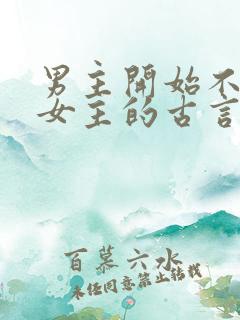 男主開始不
女主的古言
百慕六水
未经同意禁止转载